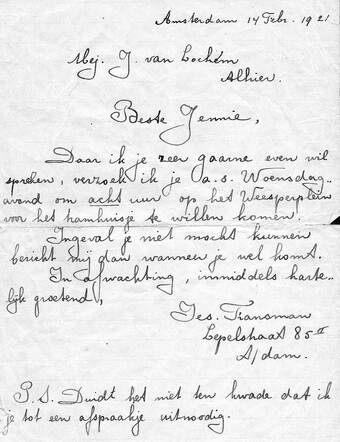 Amsterdam 14 Febr. 1921
Mej. J. van Lochem
Alhier.
Beste Jennie,
Daar ik je zeer gaarne even wil
spreken, verzoek ik je a.s. Woensdag-
avond om acht uur op het Weesperplein
voor het tramhuisje te willen komen.
Ingeval je niet mocht kunnen
bericht mij dan wanneer je wel komt.
In afwachting, inmiddels harte-
lijk groetend,
Jes. Fransman
Lepelstraat 85 II
A/dam.
P.S. Duidt het niet ten kwade dat ik
je tot een afspraakje uitnoodig.